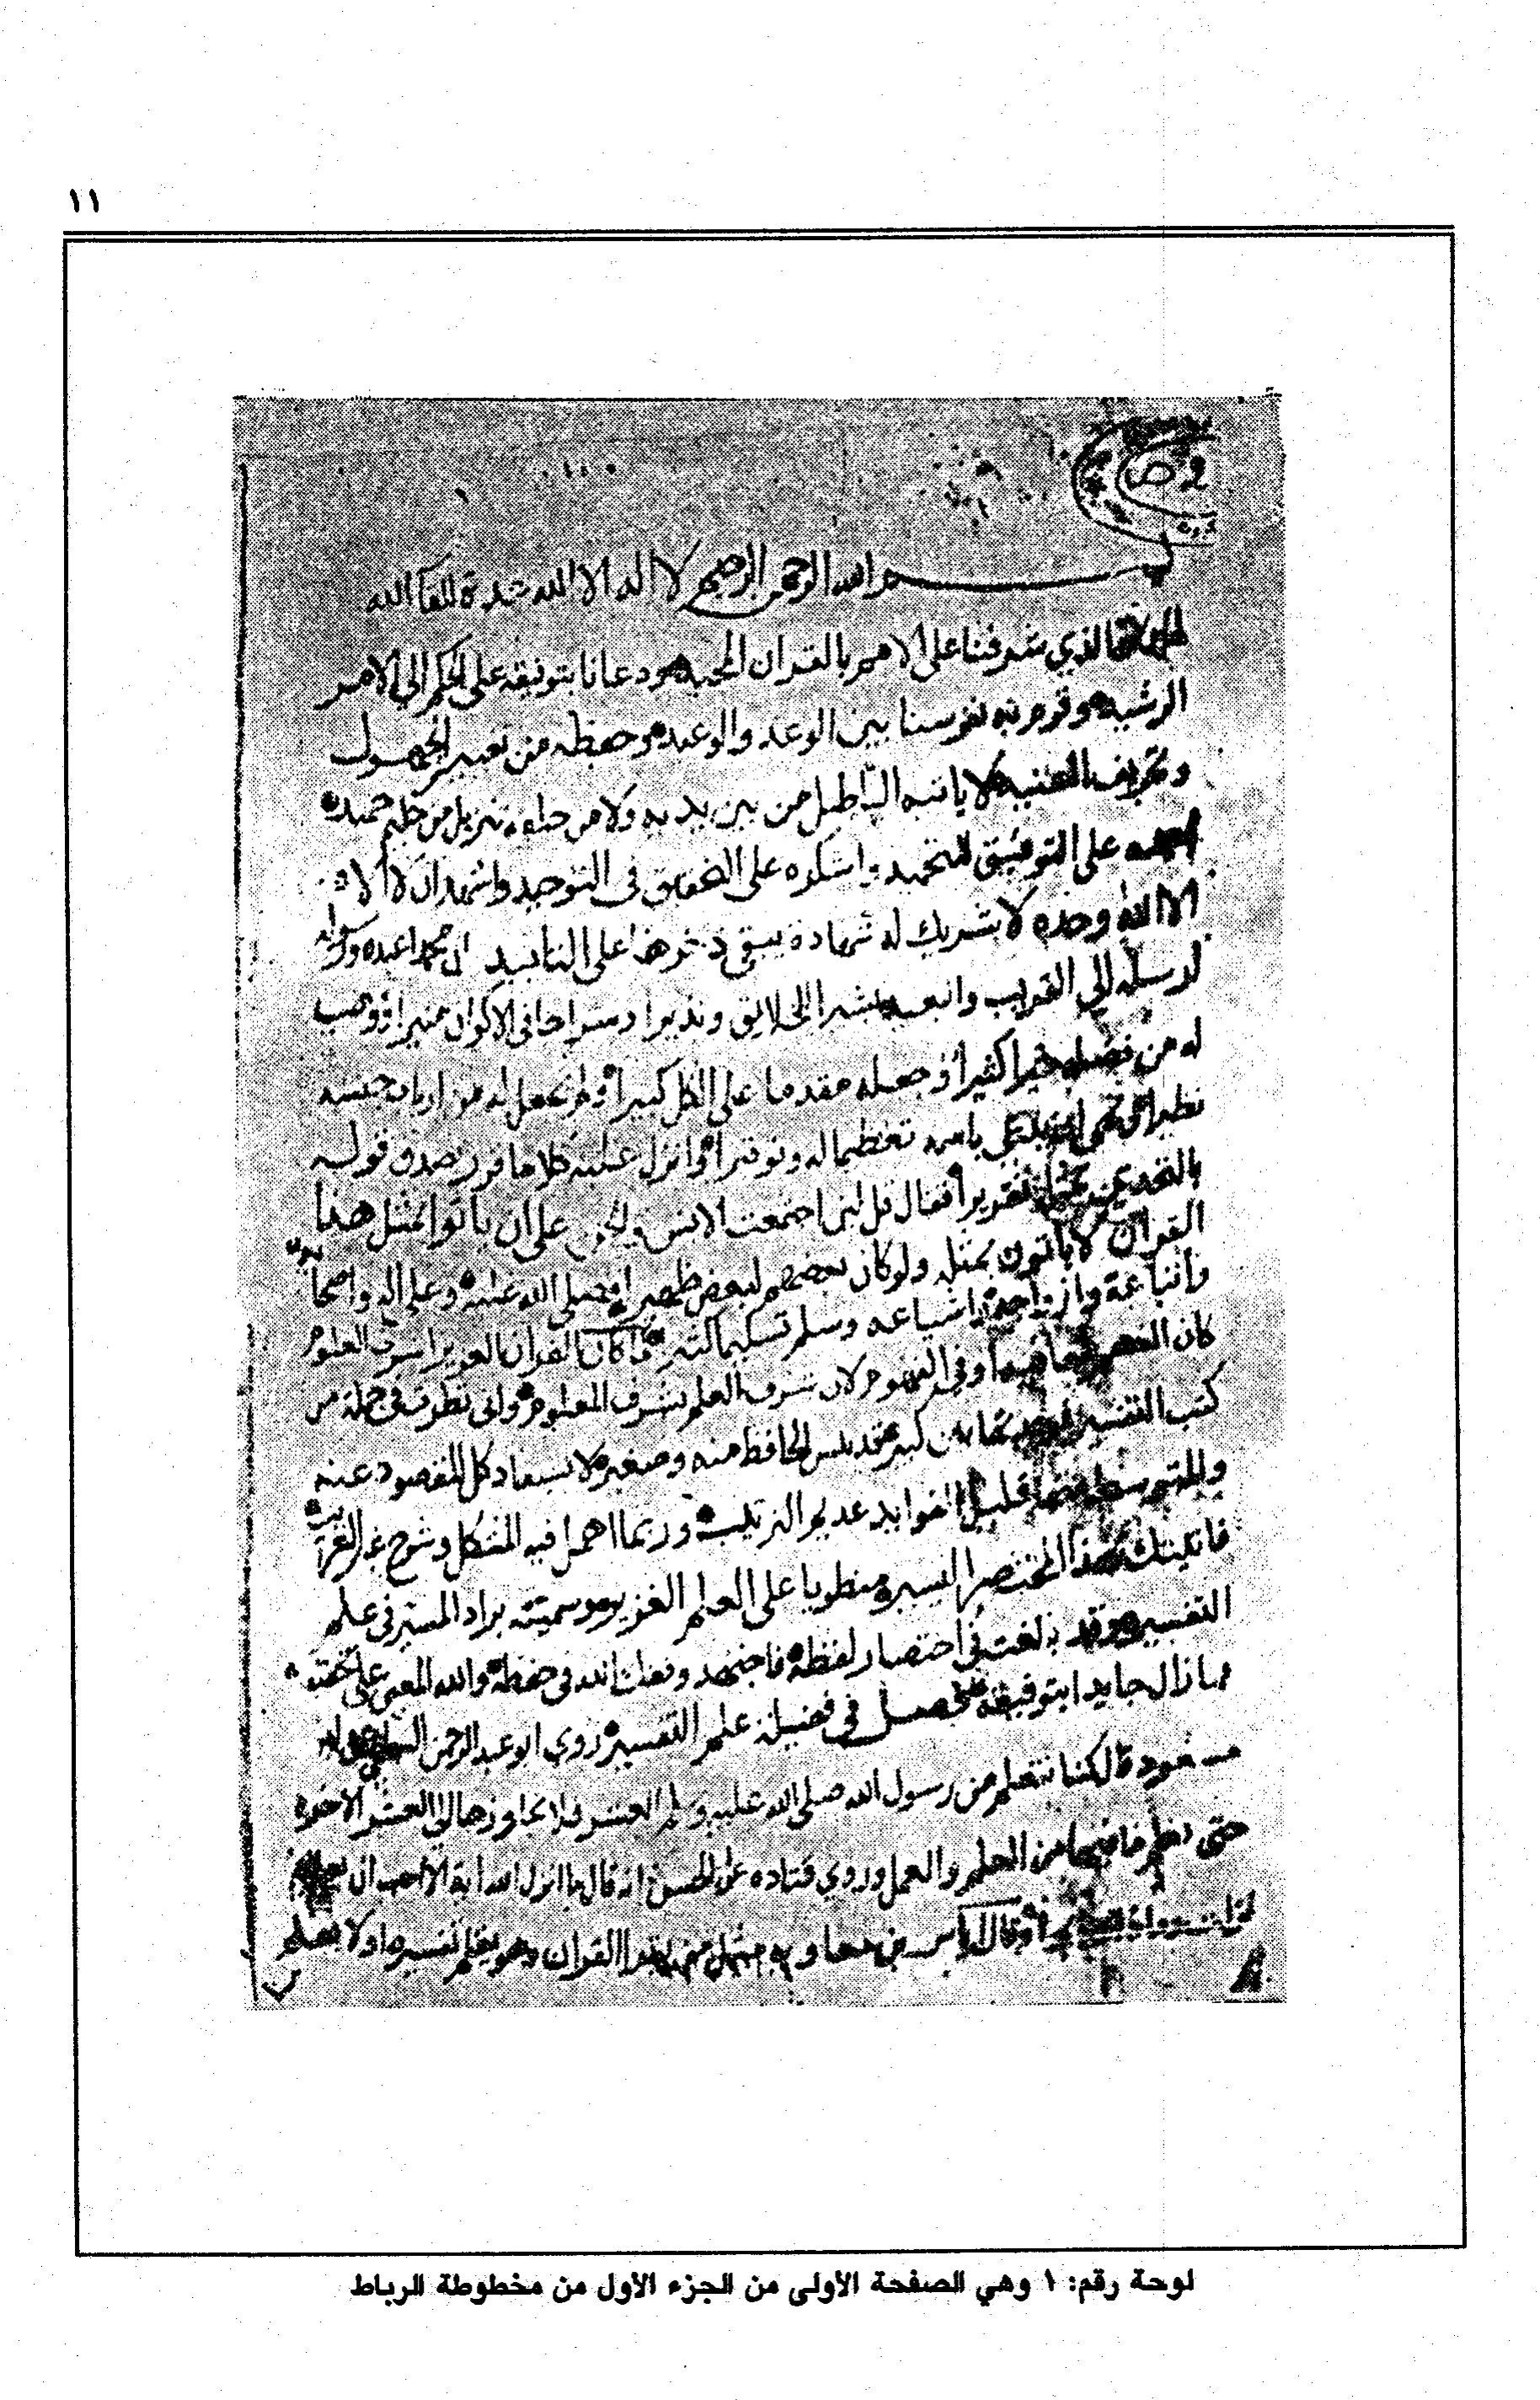 ١١
وقف
بسم الله الرحمن الرحيم لا اله الا الله عدة للقا الله
الذي شرفنا على الامم بالقران المجيد ودعانا بتوفيقه على الحكم الى الامر
الرشيد وقوم به نفوسنا بين الوعد والوعيد وحفظه من تغيير الجهول
وتحريف العنيد لا ياتيه الباطل من بين يديه ولا من خلفه تنزيل من حكيم حميد
احمده على التوفيق للتحميد واشكره على التحقيق في التوحيد واشهد ان لا اله
الا الله وحده لا شريك له شهادة يبقى ذخرها على التابيد ان محمدا عبده ورسوله
ارسله الى القريب والبعيد بشيرا للخلايق ونذيرا وسراجا في الاكوان منيرا ووهب
له من فضله خيرا كثيرا وجعله مقدما على الكل كبيرا ولم يجعل له من ارباب جنسه
نظيرا ونهى ان يدعى باسمه تعظيما له وتوقيرا وانزل عليه كلاما قرر صدق قوله
بالتحدي بمثله تقريرا فقال قل لئن اجتمعت الانس والجن على ان ياتوا بمثل هذا
القران لا ياتون بمثله ولو كان بعضهم لبعض ظهيرا فصلى الله عليه وعلى اله واصحابه
واتباعه وازواجه واشياعه وسلم تسليما كثيرا لما كان القران العزيز اشرف العلوم
كان الفهم لمعانيه اوفى الفهوم لان شرف العلم بشرف المعلوم واني نظرت في جملة من
كتب التفسير فوجدتها بين كبير قد يئس الحافظ منه وصغير لا يستفاد كل المقصود عنه
والمتوسط منها قليل الفوايد عديم الترتيب وربما اهمل فيه المشكل وشرح غير الغريب
فاتيتك بهذا المختصر اليسير منطويا على العلم الغزير ووسمته بزاد المسير في علم
التفسير وقد بالغت في اختصار لفظه فاجتهد وفقك الله في حفظه والله المعين على تحقيقه
فما زال جايدا بتوفيقه فصل في فضيلة علم التفسير روى ابو عبد الرحمن السلمي عن ابن
مسعود قال كنا نتعلم من رسول الله صلى الله عليه وسلم العشر فلا نجاوزها الى العشر الاخر
حتى نعلم ما فيها من العلم والعمل وروى قتاده عن الحسن انه قال ما انزل الله اية الا احب ان
وقال اياس بن معاويه مثل من يقرا القران وهو يعلم تفسيره او لا يعلم
لوحة رقم: ١ وهي الصفحة الأولى من الجزء الأول من مخطوطة الرباط